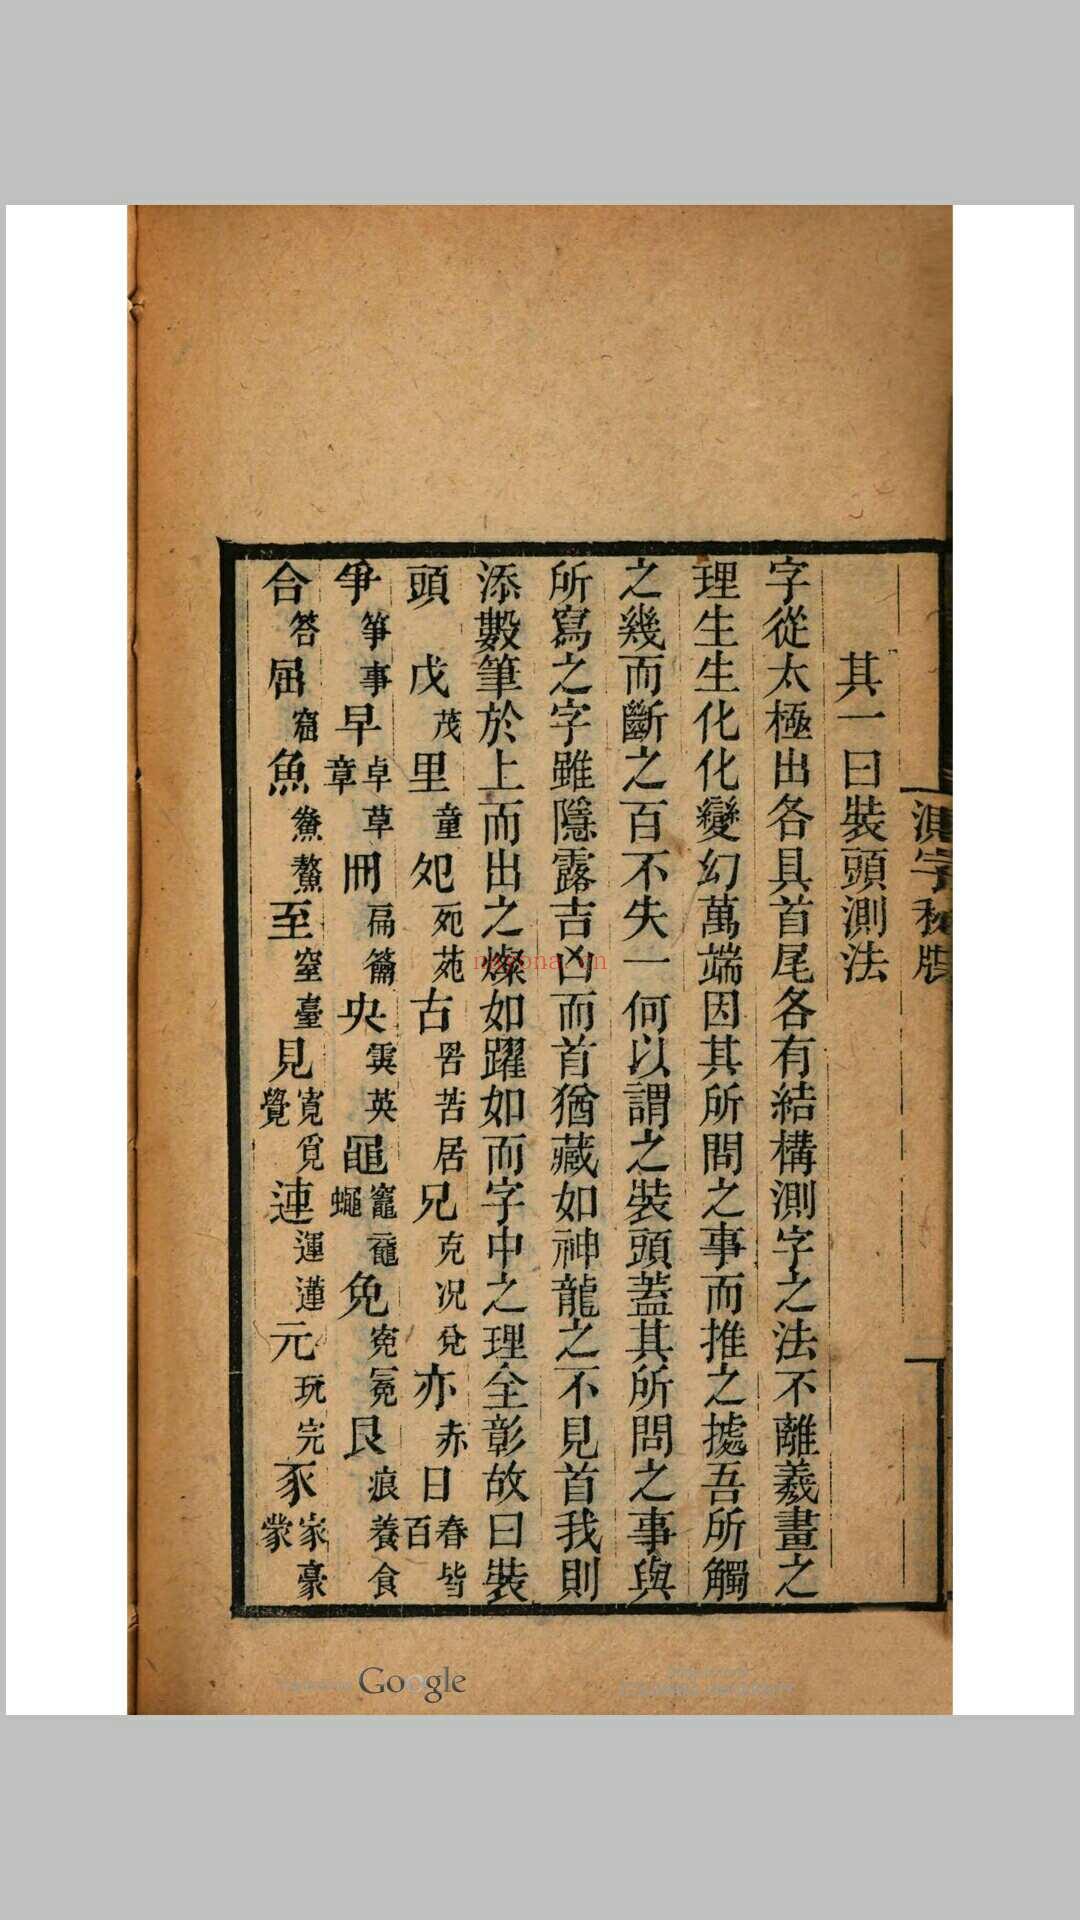 測字秘牒
其一曰裝頭測法
字從太極出各具首尾各有結構測字之法不離羲畫之
理生生化化變幻萬端因其所問之事而推之據吾所觸
之幾而斷之百不失一何以謂之裝頭蓋其所問之事與
所寫之字雖隱露吉凶而首猶藏如神龍之不見首我則
添數筆於上而出之燦如躍如而字中之理全彰故曰裝
頭 戊茂里童夗宛苑古罟苦居兄克況兌亦赤日春皆百
爭箏事早卓草章冊扁籥央霙英黽竈鼀蠅免寃冕艮痕養食
合答屈窟魚鯗鰲至窒臺見寛覓覺連運蓮元玩完豕家豪蒙
Google